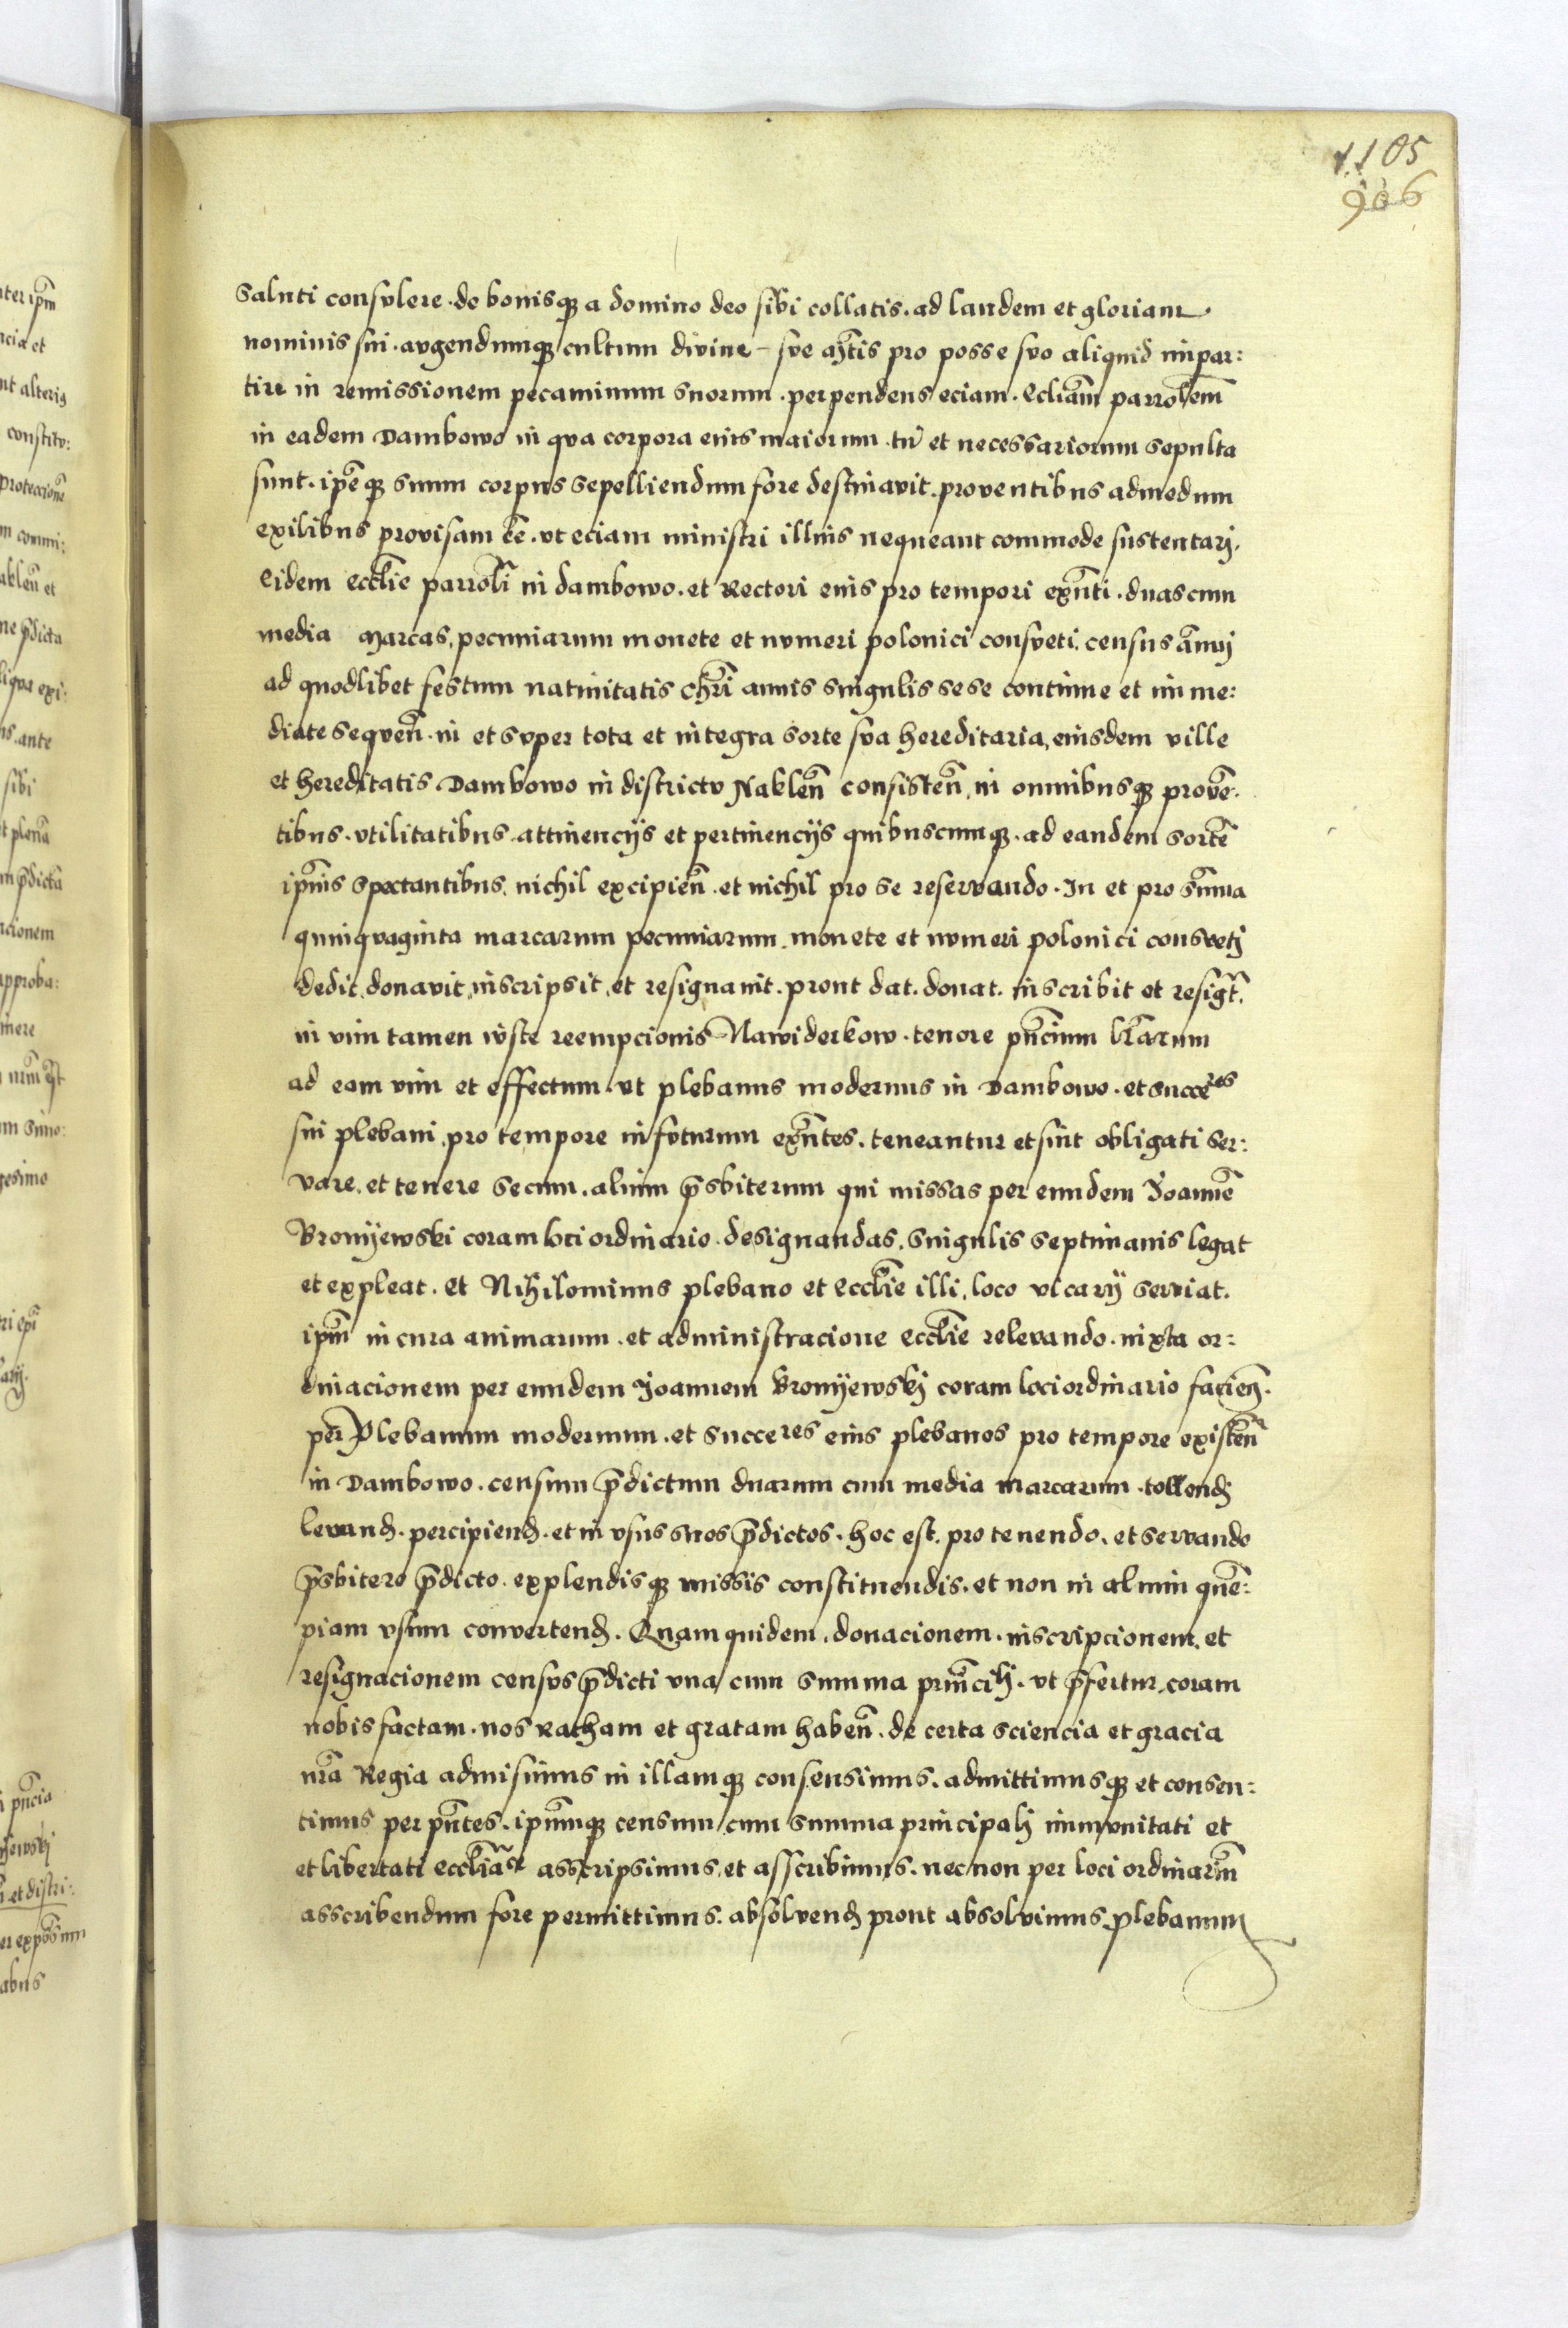 1105
906
saluti consulere. de bonisq; a domino deo sibi collatis. ad laudem et gloriam
nominis sui. augendumq; cultum divine – sve
pro posse svo aliquid impar:
tire in remissionem pecaminum suorum. perpendens eciam. Eccliam parrochlem
in eadem Dambowo in qva corpora eius maiorum. tn et necessariorum sepulta
sunt. ipeq; suum corpus sepelliendum fore destinavit. proventibus admodum
exilibus provisam ee. vt eciam ministri illius neqveant commode sustentarj.
Eidem ecclie parrochli in dambowo. et Rectori eius pro tempori exnti. duas cum
media Marcas. pecuniarum monete et nvmeri polonici consveti. census annuj
ad quodlibet festum natiuitatis chri annis singulis sese continue et imme:
diate seqven. in et svper tota et integra sorte sva hereditaria, eiusdem ville
et hereditatis Dambowo in districtv Naklen consisten. in omnibusq; proven.
tibus. vtilitatibus attinencijs et pertinencijs quibuscumq;. ad eandem sorte
ipius spectantibus. nichil excipien. et nichil pro se reservando. In et pro suma
quinqvaginta marcarum pecuniarum. monete et nvmeri polonici consvetj
dedit, donavit, inscripsit, et resignauit. prout dat. donat. inscribit et resigt.
in vim tamen ivste reempcionis Nawiderkow. tenore pncium lrarum
ad eam vim et effectum. vt plebanus modernus in Dambowo. et succeres
sui plebani, pro tempore in fvturum exntes. teneantur et sint obligati ser:
vare. et tenere secum. alium psbiterum qui missas per eundem Joanne
Bronijewski coram loci ordinario. designandas. singulis septimanis legat
et expleat. et Nihilominus plebano et ecclie illi. loco vicarij serviat.
ipm in cura animarum. et administracione ecclie relevando. iuxta or:
dinacionem per eundem Joannem Bronijewskj coram loci ordinario facien.
per Plebanum modernum. et succeres eius plebanos pro tempore existen
in Dambowo. censum pdictum duarum cum media marcarum. tollend
levand. percipiend. et in vsus suos pdictos. hoc est. pro tenendo. et servando
psbitero pdicto. explendisq; missis constituendis. et non in alium que:
piam vsum convertend. Quam quidem. donacionem. inscripcionem. et
resignacionem censvs pdicti vna cum summa princili. vt pfertur, coram
nobis factam. nos ratham et gratam haben. de certa sciencia et gracia
nra Regia admisimus in illamq; consensimus. admittimusq; et consen:
timus per pntes. ipmq; censum cum summa principalj immvnitati et
et libertati eccliace asscripsimus. et asscribimus. necnon per loci ordinarim
asscribendum fore permittimus. absolvend prout absolvimus plebanum